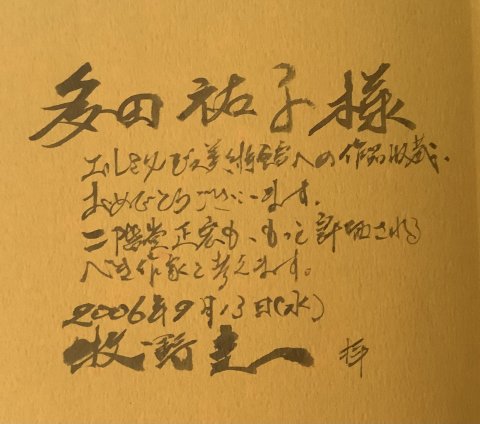 多田祐子様
エルミタージュ美術館への作品収蔵、
おめでとうございます。
二階堂正宏も、もっと評価される
べき作家と考えます。
2006年9月13日(水)
牧野圭一 拝